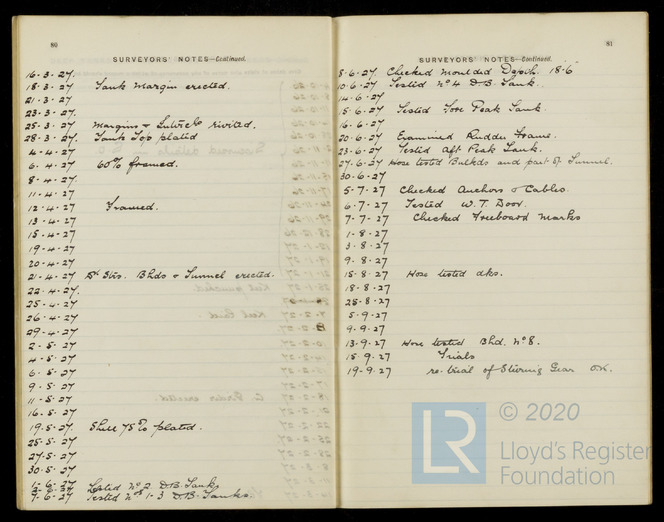 80
SURVEYORS' NOTES—Continued.
16-3-27.
18-3-27 Tank Margin erected.
21-3-27
23-3-27.
25-3-27 Margins & riveted.
28-3-27. Tank Top plated
4-4-27
6-4-27 60% framed.
8-4-27.
11-4-27
12-4-27 Framed.
13-4-27
15-4-27
19-4-27
20-4-27
21-4-27 Bhds & Tunnel erected.
22-4-27.
25-4-27
26-4-27
29-4-27
2-5-27
4-5-27
6-5-27
9-5-27
11-5-27
16-5-27
19-5-27. Shell 75% plated.
25-5-27
27-5-27
30-5-27
1-6-27 Tested No 2 D.B. Tank
7-6-27 Tested Nos 1-3 D.B. Tanks.
81
SURVEYORS' NOTES—Continued.
8-6-27. Checked Moulded Depth. 18.6
10-6-27 Tested No 4 D.B. Tank.
14-6-27
15-6-27 Tested Fore Peak Tank
16-6-27
20-6-27 Examined Rudder Frame.
23-6-27 Tested Aft Peak Tank.
27-6-27 Hose tested Bulkds and part of Tunnel.
30-6-27
5-7-27 Checked Anchors & Cables.
6-7-27 Tested W.T. Door.
7-7-27 Checked Freeboard Marks
1-8-27
3-8-27
9-8-27
15-8-27 Hose tested dks.
18-8-27
25-8-27
5-9-27
9-9-27
13-9-27 Hose tested Bhd. No 8.
15-9-27 Trials
19-9-27 re-trial of Steering Gear O.K.
LR © 2020
Lloyd's Register
Foundation